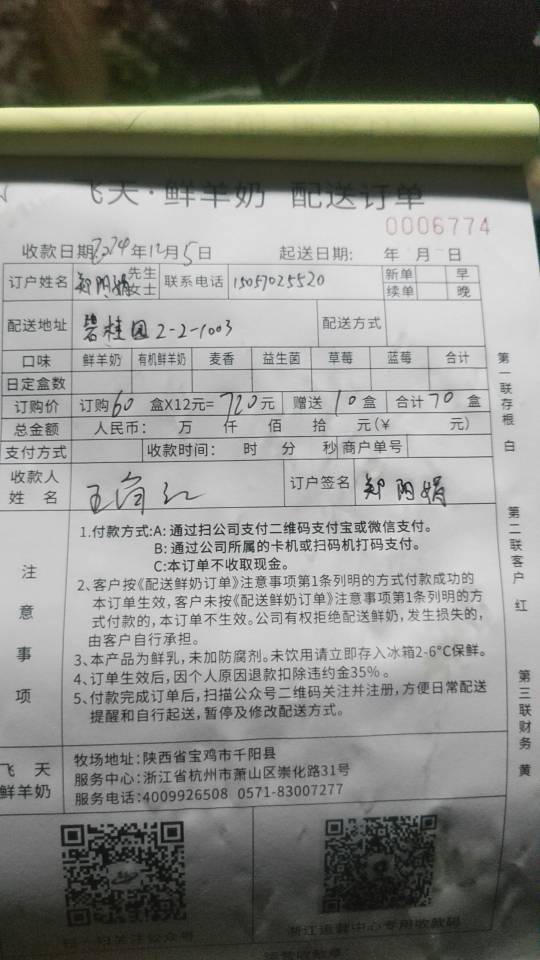 飞天·鲜羊奶 配送订单
0006774
收款日期 2024年12月5日 起送日期: 年 月 日
订户姓名 郑阳娟 先生 女士 联系电话 15057025520 新单 早
续单 晚
配送地址 碧桂园2-2-1003 配送方式
口味 鲜羊奶 有机鲜羊奶 麦香 益生菌 草莓 蓝莓 合计
日定盒数
订购价 订购60盒X12元=720元 赠送10盒 合计70盒
总金额 人民币: 万 仟 佰 拾 元(￥ 元)
支付方式 收款时间: 时 分 秒 商户单号
收款人姓名 订户签名 郑阳娟
注意事项
1.付款方式:A:通过扫公司支付二维码支付宝或微信支付。
B:通过公司所属的卡机或扫码机打码支付。
C:本订单不收取现金。
2、客户按《配送鲜奶订单》注意事项第1条列明的方式付款成功的
本订单生效,客户未按《配送鲜奶订单》注意事项第1条列明的方
式付款的,本订单不生效。公司有权拒绝配送鲜奶,发生损失的,
由客户自行承担。
3、本产品为鲜乳,未加防腐剂。未饮用请立即存入冰箱2-6°C保鲜。
4、订单生效后,因个人原因退款扣除违约金35%。
5、付款完成订单后,扫描公众号二维码关注并注册,方便日常配送
提醒和自行起送,暂停及修改配送方式。
飞天鲜羊奶
牧场地址:陕西省宝鸡市千阳县
服务中心:浙江省杭州市萧山区崇化路31号
服务电话:4009926508 0571-83007277
扫一扫关注公众号 浙江运营中心专用收款码
第一联存根 白
第二联客户 红
第三联财务 黄